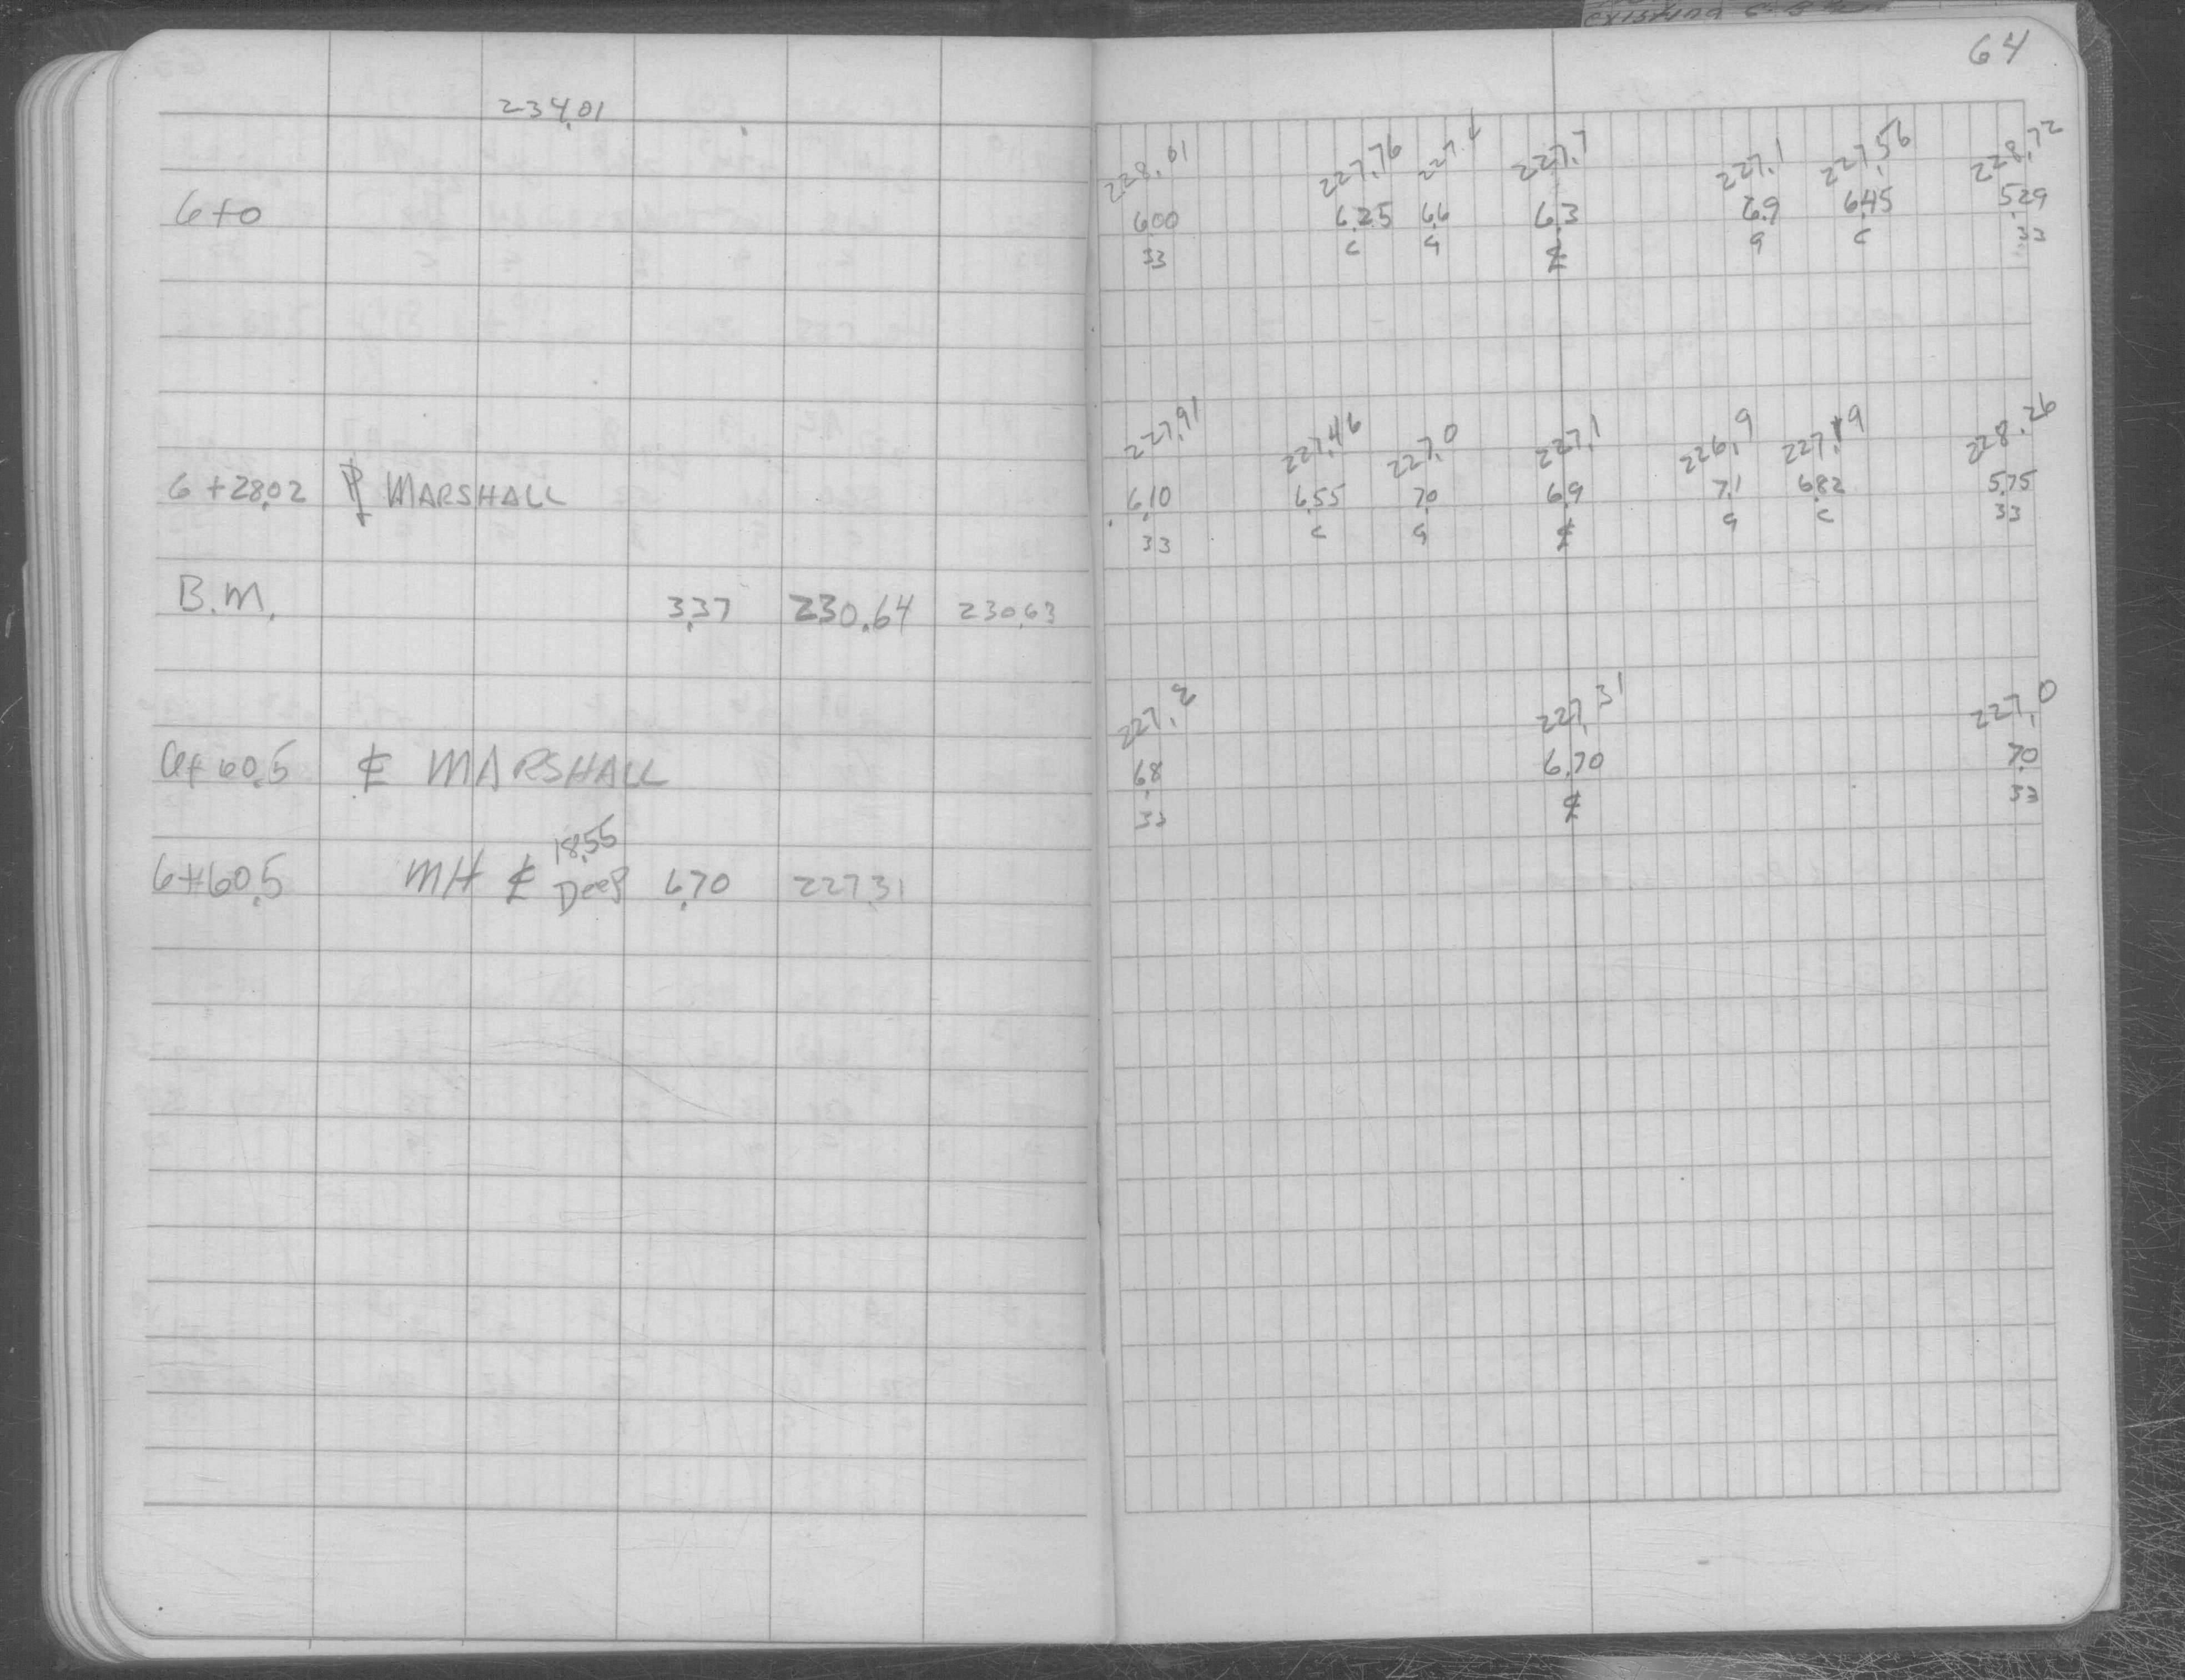 existing C.B.
64
234.01
228.01 227.76 227.4 227.7 227.1 227.56 228.72
6+0 6.00 6.25 6.6 6.3 6.9 6.45 5.29
33 C G ℄ G C 33
227.91 227.46 227.0 227.1 226.9 227.19 228.26
6+28.02 ⅊ MARSHALL 6.10 6.55 7.0 6.9 7.1 6.82 5.75
33 C G ℄ G C 33
B.M. 3.37 230.64 230.63
227.2 227.31 227.0
6+60.5 ℄ MARSHALL 6.8 6.70 7.0
33 ℄ 33
18.55
6+60.5 MH ℄ Deep 6.70 227.31